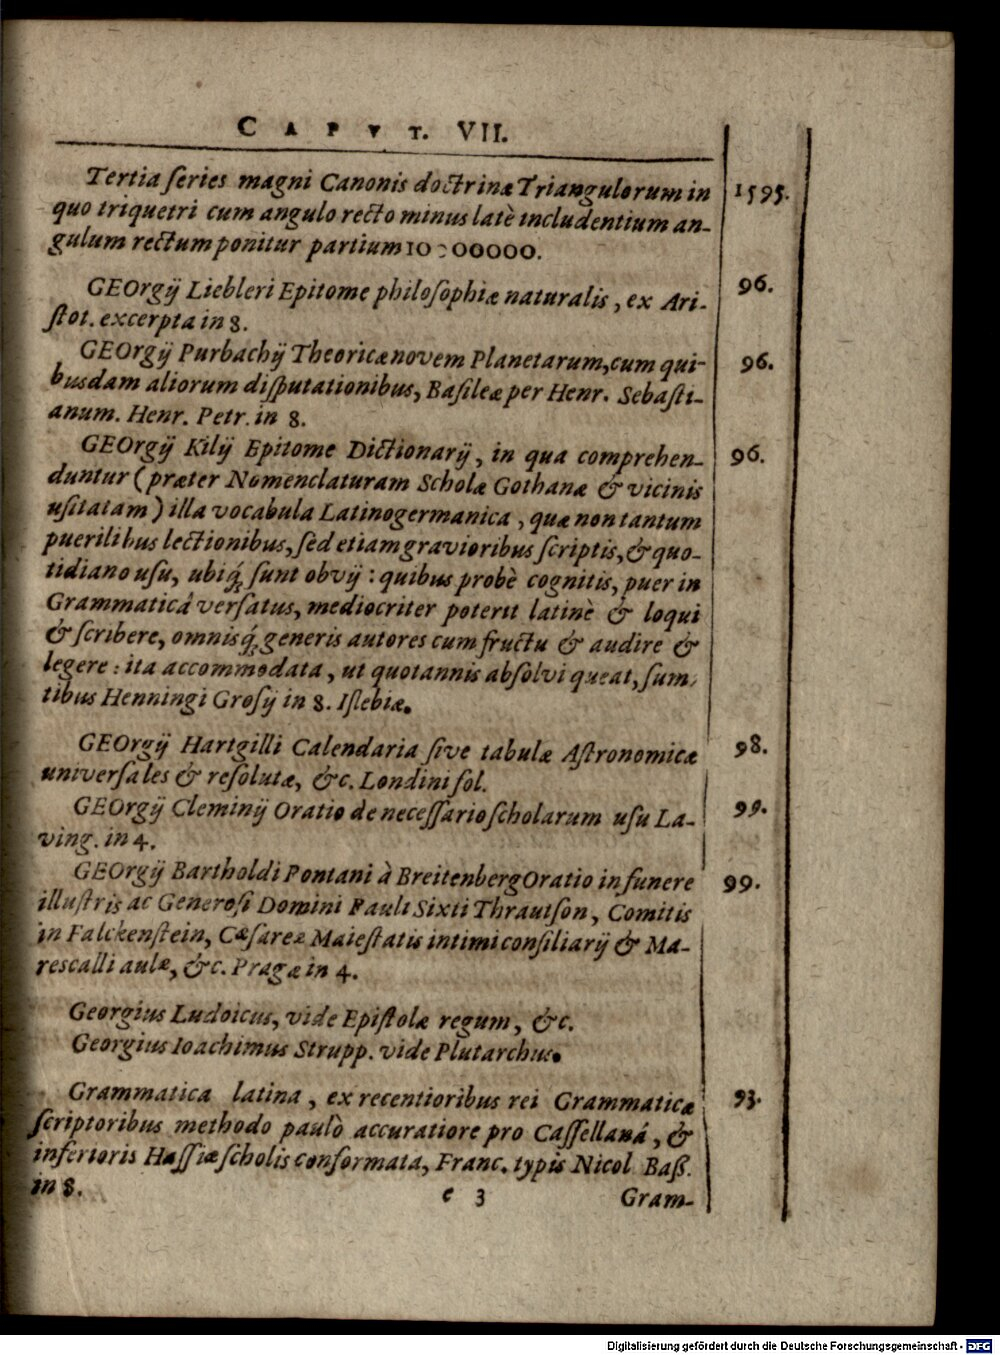 CAPVT. VII.
Tertia ſeries magni Canonis doctrinæ Triangulorum in 1595.
quo triquetri cum angulo recto minus latè includentium an-
gulum rectum ponitur partium 10000000.
GEOrgij Liebleri Epitome philoſophiæ naturalis, ex Ari- 96.
ſtot. excerpta in 8.
GEOrgij Purbachij Theoricæ novem Planetarum, cum qui- 96.
busdam aliorum diſputationibus, Baſileæ per Henr. Sebaſti-
anum. Henr. Petr. in 8.
GEOrgij Kilij Epitome Dictionarij, in qua comprehen- 96.
duntur (præter Nomenclaturam Scholæ Gothanæ & vicinis
uſitatam) illa vocabula Latinogermanica, quæ non tantum
puerilibus lectionibus, ſed etiam gravioribus ſcriptis, & quo-
tidiano uſu, ubiq́; ſunt obvij: quibus probè cognitis, puer in
Grammaticâ verſatus, mediocriter poterit latinè & loqui
& ſcribere, omnisq́; generis autores cum fructu & audire &
legere: ita accommodata, ut quotannis abſolvi queat, ſum-
tibus Henningi Groſij in 8. Iſlebiæ.
GEOrgij Hartgilli Calendaria ſive tabulæ Aſtronomicæ 98.
univerſales & reſolutæ, &c. Londini fol.
GEOrgij Cleminij Oratio de neceſſario ſcholarum uſu La- 99.
ving. in 4.
GEOrgij Bartholdi Pontani à Breitenberg Oratio in funere 99.
illuſtris ac Generoſi Domini Pauli Sixti Thrautſon, Comitis
in Falckenſtein, Cæſareæ Maieſtatis intimi conſiliarij & Ma-
reſcalli aulæ, &c. Pragæ in 4.
Georgius Ludoicus, vide Epiſtolæ regum, &c.
Georgius Ioachimus Strupp. vide Plutarchus.
Grammatica latina, ex recentioribus rei Grammaticæ 93.
ſcriptoribus methodo paulò accuratiore pro Caſſellaná, &
inferioris Haſſiæ ſcholis conformata, Franc. typis Nicol Baß.
in 8.
e 3 Gram-
Digitalisierung gefördert durch die Deutsche Forschungsgemeinschaft - DFG